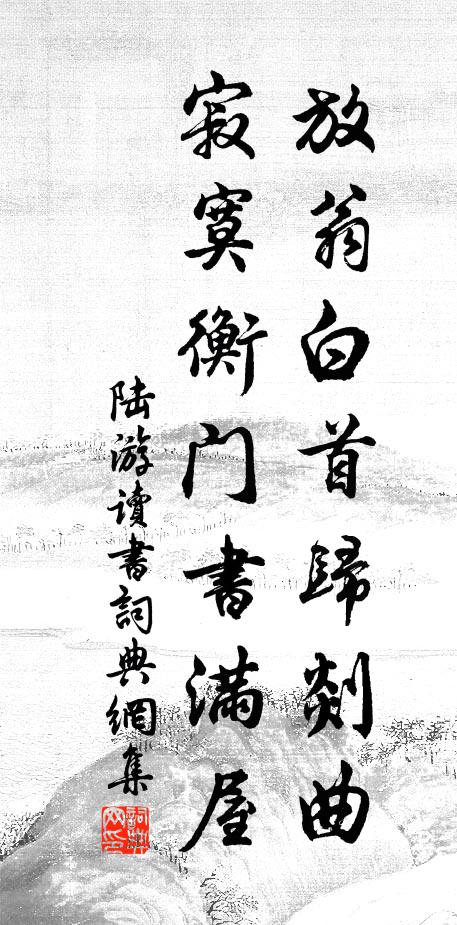 放翁白首歸剡曲
寂寞衡門書滿屋
陸游讀書詞典網集